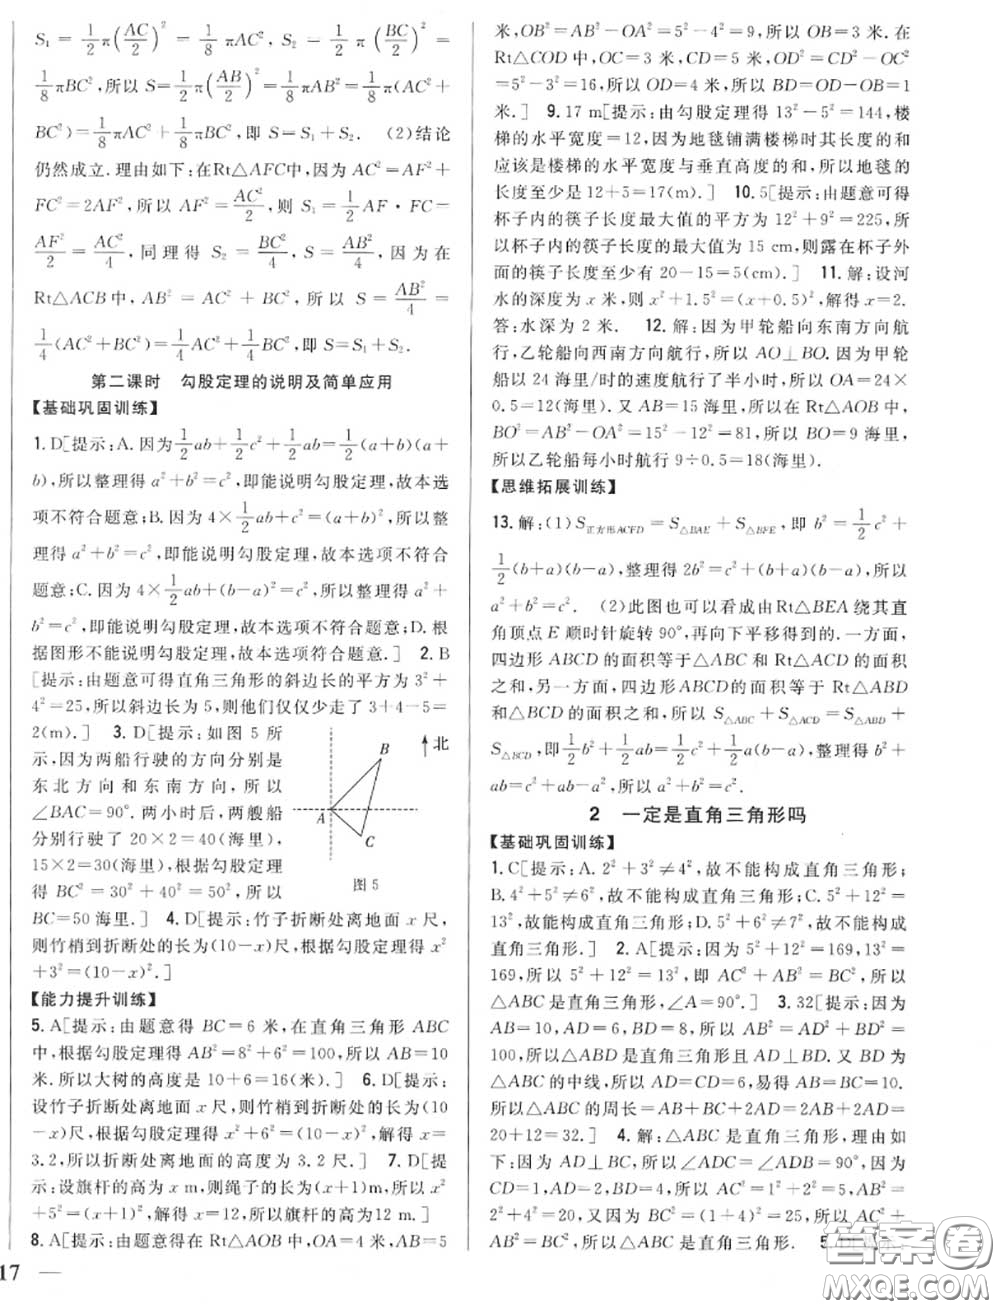 S₁=1/2π(AC/2)²=1/8πAC², S₂=1/2π(BC/2)²=
1/8πBC²,所以S=1/2π(AB/2)²=1/8πAB²=1/8π(AC²+
BC²)=1/8πAC²+1/8πBC²,即S=S₁+S₂. (2)结论
仍然成立.理由如下:在Rt△AFC中,因为AC²=AF²+
FC²=2AF²,所以AF²=AC²/2,则S₁=1/2AF·FC=
AF²/2=AC²/4,同理得S₂=BC²/4,S=AB²/4,因为在
Rt△ACB中,AB²=AC²+BC²,所以S=AB²/4=
1/4(AC²+BC²)=1/4AC²+1/4BC²=S₁+S₂.
第二课时 勾股定理的说明及简单应用
【基础巩固训练】
1.D[提示:A.因为1/2ab+1/2c²+1/2ab=1/2(a+b)(a+
b),所以整理得a²+b²=c²,即能说明勾股定理,故本选
项不符合题意;B.因为4×1/2ab+c²=(a+b)²,所以整
理得a²+b²=c²,即能说明勾股定理,故本选项不符合
题意;C.因为4×1/2ab+(b-a)²=c²,所以整理得a²+
b²=c²,即能说明勾股定理,故本选项不符合题意;D.根
据图形不能说明勾股定理,故本选项符合题意.] 2.B
[提示:由题意可得直角三角形的斜边长的平方为3²+
4²=25,所以斜边长为5,则他们仅仅少走了3+4-5=
2(m).] 3.D[提示:如图5所
示,因为两船行驶的方向分别是
东北方向和东南方向,所以
∠BAC=90°.两小时后,两艘船
分别行驶了20×2=40(海里),
15×2=30(海里),根据勾股定理
得BC²=30²+40²=50²,所以
BC=50海里.] 4.D[提示:竹子折断处离地面x尺,
B
北
A
C
图5
则竹梢到折断处的长为(10-x)尺,根据勾股定理得x²
+3²=(10-x)².]
【能力提升训练】
5.A[提示:由题意得BC=6米,在直角三角形ABC
中,根据勾股定理得AB²=8²+6²=100,所以AB=10
米.所以大树的高度是10+6=16(米).] 6.D[提示:
设竹子折断处离地面x尺,则竹梢到折断处的长为(10
-x)尺,根据勾股定理得x²+6²=(10-x)²,解得x=
3.2,所以折断处离地面的高度为3.2尺.] 7.D[提
示:设旗杆的高为x m,则绳子的长为(x+1)m,所以x²
+5²=(x+1)²,解得x=12,所以旗杆的高为12 m.]
8.A[提示:由题意得,在Rt△AOB中,OA=4米,AB=5
17
米,OB²=AB²-OA²=5²-4²=9,所以OB=3米.在
Rt△COD中,OC=3米,CD=5米,OD²=CD²-OC²
=5²-3²=16,所以OD=4米,所以BD=OD-OB=1
米.] 9.17 m[提示:由勾股定理得13²-5²=144,楼
梯的水平宽度=12,因为地毯铺满楼梯时其长度的和
应该是楼梯的水平宽度与垂直高度的和,所以地毯的
长度至少是12+5=17(m).] 10.5[提示:由题意可得
杯子内的筷子长度最大值的平方为12²+9²=225,所
以杯子内的筷子长度的最大值为15 cm,则露在杯子外
面的筷子长度至少有20-15=5(cm).] 11.解:设河
水的深度为x米,则x²+1.5²=(x+0.5)²,解得x=2.
答:水深为2米. 12.解:因为甲轮船向东南方向航
行,乙轮船向西南方向航行,所以AO⊥BO.因为甲轮
船以24海里/时的速度航行了半小时,所以OA=24×
0.5=12(海里).又AB=15海里,所以在Rt△AOB中,
BO²=AB²-OA²=15²-12²=81,所以BO=9海里,
所以乙轮船每小时航行9÷0.5=18(海里).
【思维拓展训练】
13.解:(1)S正方形ACFD=S△BAE+S△BFE,即b²=1/2c²+
1/2(b+a)(b-a),整理得2b²=c²+(b+a)(b-a),所以
a²+b²=c². (2)此图也可以看成由Rt△BEA绕其直
角顶点E顺时针旋转90°,再向下平移得到的.一方面,
四边形ABCD的面积等于△ABC和Rt△ACD的面积
之和,另一方面,四边形ABCD的面积等于Rt△ABD
和△BCD的面积之和,所以S△ABC+S△ACD=S△ABD+
S△BCD,即1/2b²+1/2ab=1/2c²+1/2a(b-a),整理得b²+
ab=c²+ab-a²,所以a²+b²=c².
2 一定是直角三角形吗
【基础巩固训练】
1.C[提示:A.2²+3²≠4²,故不能构成直角三角形;
B.4²+5²≠6²,故不能构成直角三角形;C.5²+12²=
13²,故能构成直角三角形;D.5²+6²≠7²,故不能构成
直角三角形.] 2.A[提示:因为5²+12²=169,13²=
169,所以5²+12²=13²,即AC²+AB²=BC²,所以
△ABC是直角三角形,∠A=90°.] 3.32[提示:因为
AB=10,AD=6,BD=8,所以AB²=AD²+BD²=
100,所以△ABD是直角三角形且AD⊥BD.又BD为
△ABC的中线,所以AD=CD=6,易得AB=BC=10.
所以△ABC的周长=AB+BC+2AD=2AB+2AD=
20+12=32.] 4.解:△ABC是直角三角形,理由如
下:因为AD⊥BC,所以∠ADC=∠ADB=90°.因为
CD=1,AD=2,BD=4,所以AC²=1²+2²=5,AB²=
2²+4²=20,又因为BC²=(1+4)²=25,所以AC²+
AB²=BC²,所以△ABC是直角三角形. 5.
答案圈
MXQE.COM